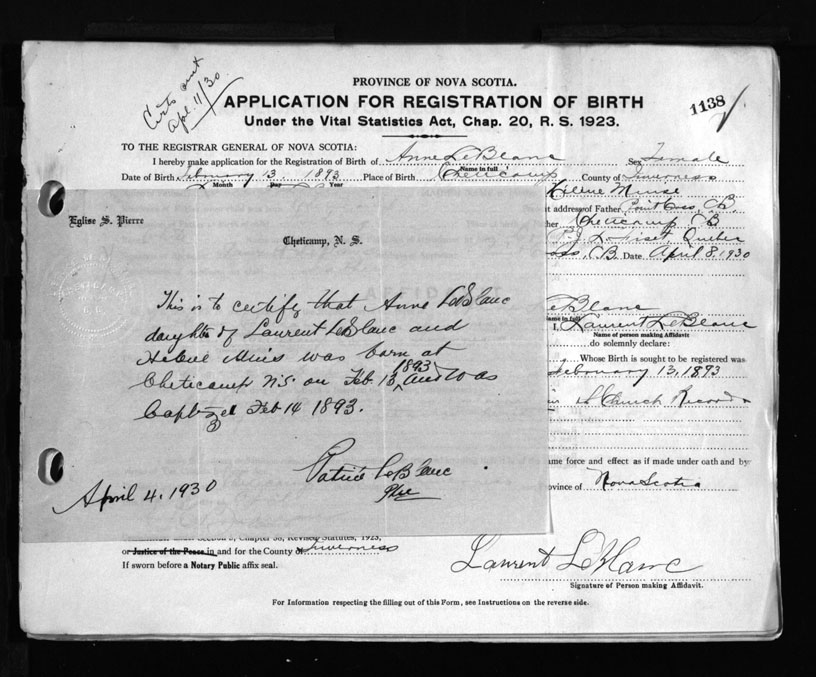 Certs sent
Apl. 11/30.
PROVINCE OF NOVA SCOTIA.
1138
APPLICATION FOR REGISTRATION OF BIRTH
Under the Vital Statistics Act, Chap. 20, R. S. 1923.
TO THE REGISTRAR GENERAL OF NOVA SCOTIA:
I hereby make application for the Registration of Birth of Anne LeBlanc Sex Female
Name in full
Date of Birth February 13, 1893 Place of Birth Cheticamp County of Inverness
Month Day Year
Address of Father Point Cross, C.B.
Cheticamp CB
Quebec
C.B. Date April 8, 1930
Eglise S. Pierre
Cheticamp, N. S.
This is to certify that Anne LeBlanc
daughter of Laurent LeBlanc and
Helene Muis was born at
Cheticamp N.S. on Feb. 13, 1893 and was
baptized Feb 14 1893.
Patrice LeBlanc
April 4, 1930
LeBlanc
Name in full
I, Laurent LeBlanc
Name of person making Affidavit
do solemnly declare:
Whose Birth is sought to be registered was
February 13, 1893
Church Records
same force and effect as if made under oath and by
Province of Nova Scotia
Revised Statutes, 1923,
or Justice of the Peace in and for the County of Inverness
If sworn before a Notary Public affix seal.
Laurent LeBlanc
Signature of Person making Affidavit.
For Information respecting the filling out of this Form, see Instructions on the reverse side.